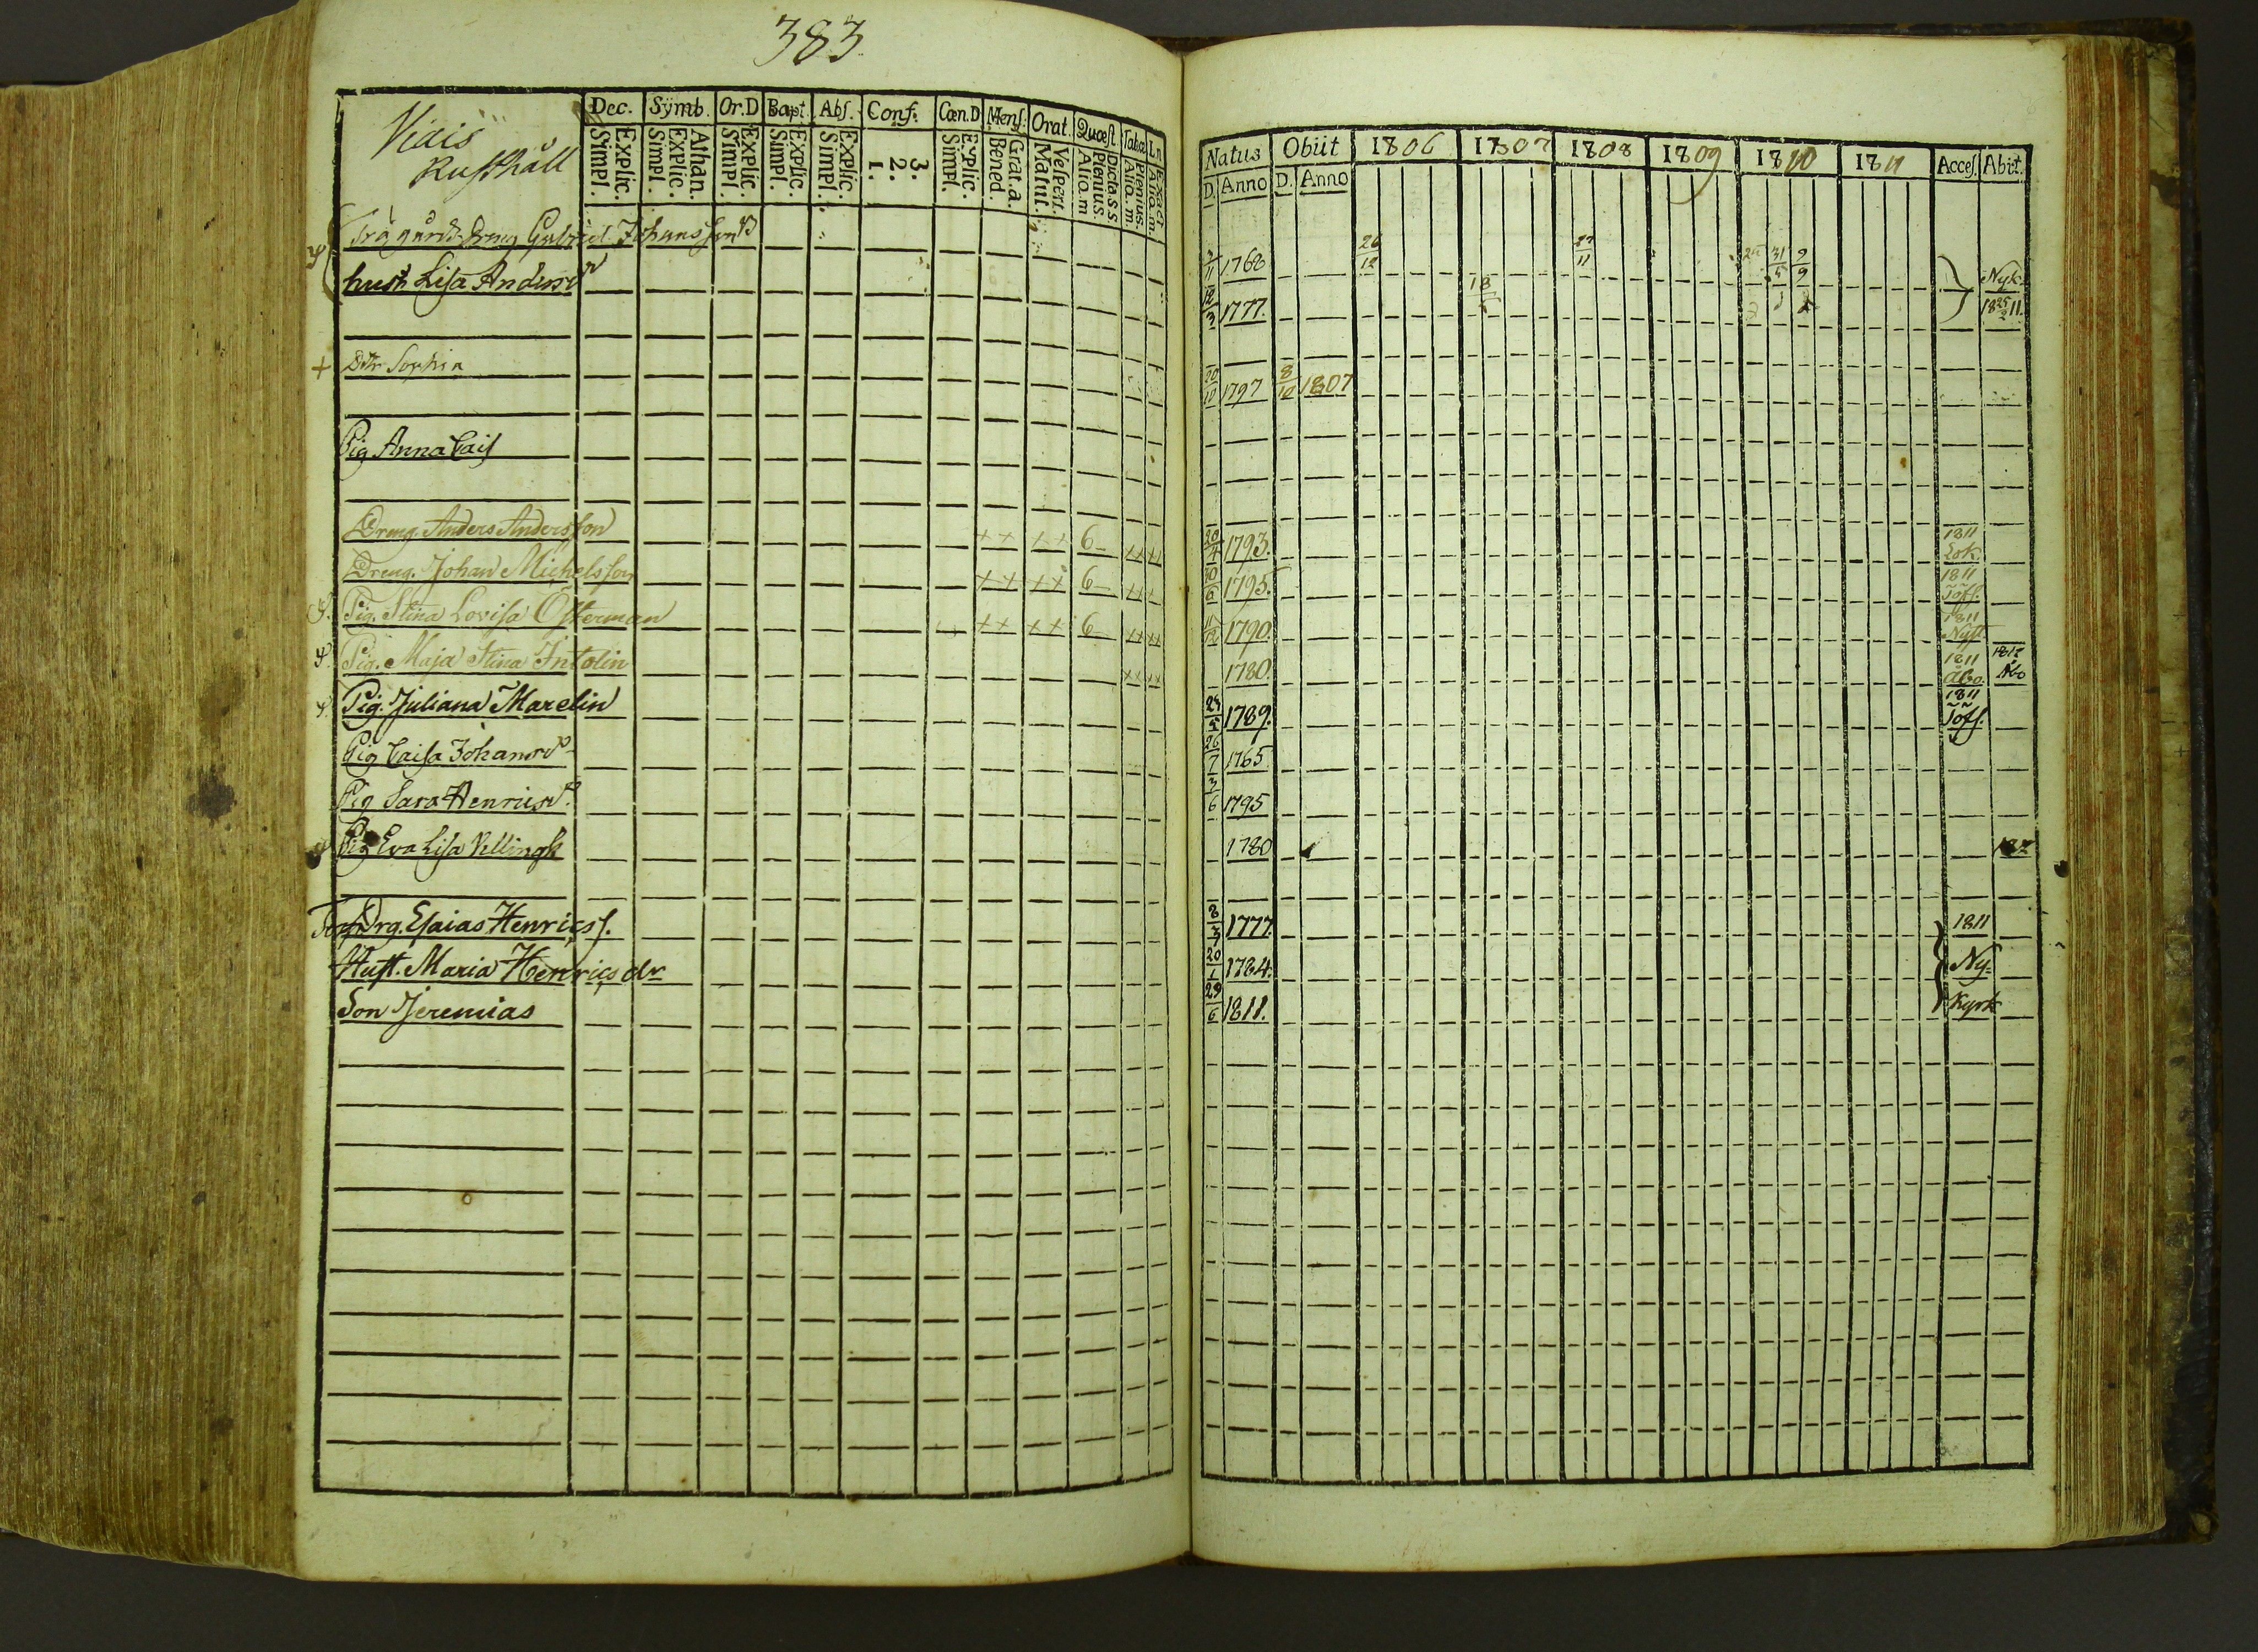 383
Viais
Rusthåll
Dec. Symb. Or.D Bapt. Abs. Conf. Cœn.D Mens. Orat. Quæst. Tabal Ln
Explic. Simpl. Athan. Explic. Simpl. Explic. Simpl. Explic. Simpl. Explic. Simpl. 3. 2. 1. Explic. Simpl. Grat.a. Bened. Vespert. Matut. Dicta s.s. Plenius. Alio.m Plenius. Alio.m Exact Alio.m.
Natus Obiit 1806 1807 1808 1809 1810 1811 Acces. Abiit.
D. Anno D. Anno
Trägårds Dreng Gabriel Johansson 1768 26/12 27/11 31/5 9/9
hust Lisa Andersdr 12/3 1777. Nyk. 18 25/2 11.
+ Dttr Sophia 20/10 1797 8/10 1807
Pig Anna Cais
Dreng. Anders Andersson ++ ++ 6 ++ ++ 20/4 1793. 1811 Lok.
Dreng. Johan Michelsson ++ ++ 6 ++ + 30/6 1795. 1811 Töfs.
Pig. Stina Lovisa Österman ++ ++ 6 ++ ++ 11/12 1790. 1811 Nyst
Pig. Maja Stina Intolin ++ ++ 1780. 1811 Åbo. 1812 Åbo
Pig. Juliana Marelin 1789. 1811 Töfs.
Pig Caisa Johansdr 26/7 1765
Pig Sara Henricsdr. 3/6 1795
Pig Eva Lisa Vellingk 1780
Drg. Esaias Henricss. 8/3 1777. 1811
Hust. Maria Henricsdr 20/1 1784. Ny-
Son Jeremias 29/6 1811. Kyrk